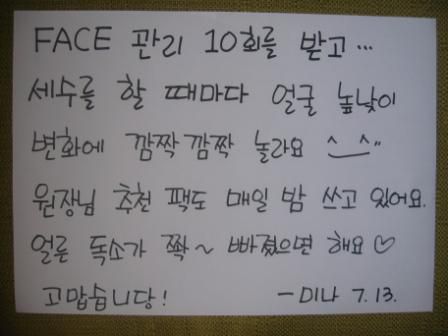 FACE 관리 10회를 받고...
세수를 할 때마다 얼굴 높낮이
변화에 깜짝깜짝 놀라요 ^__^"
원장님 추천 팩도 매일 밤 쓰고 있어요.
얼른 독소가 쫙~ 빠졌으면 해요♡
고맙습니당! -미나 7.13.